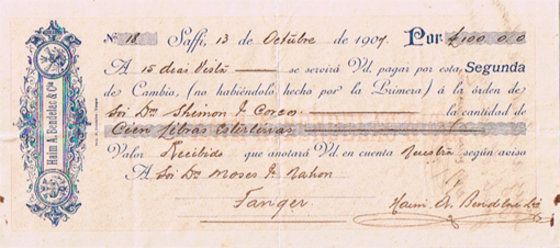 Nº 18 Saffi, 13 de Octubre de 1907 Por £100.0.0
A 15 dias vista se servirá Vd. pagar por esta Segunda
de Cambio, (no habiéndolo hecho por la Primera) á la órden de
Sor Dn Shimon J. Corcos la cantidad de
Cien libras esterlinas
Valor Recibido que anotará Vd. en cuenta nuestra según aviso
A Sor Dn Moses J. Nahon
Tanger
Haim A. Bendelac & Co
Haim A. Bendelac & Cº